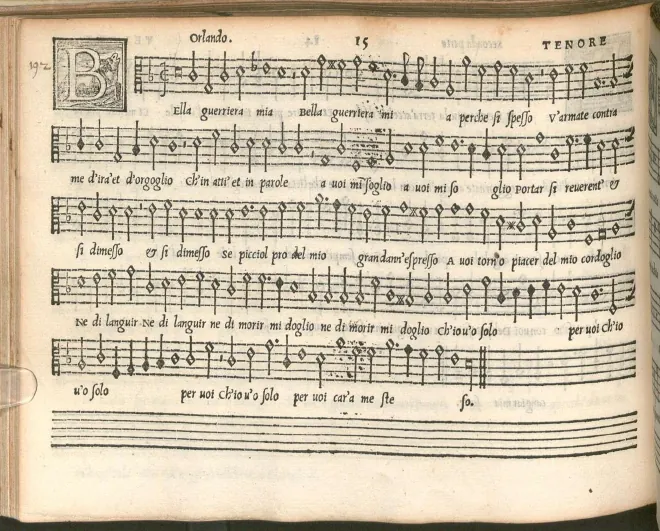 192
Orlando. 15 TENORE
BElla guerriera mia Bella guerriera mi a perche si spesso V'armate contra
me d'ira et d'orgoglio Ch'in atti et in parole a uoi mi soglio in a uoi mi so glio Portar si reuerent' &
si dimesso & si dimesso Se picciol pro del mio grandann'espresso A uoi torn'o piacer del mio cordoglio
Ne di languir Ne di languir ne di morir mi doglio ne di morir mi doglio Ch'io u'o solo per uoi Ch'io
u'o solo per uoi Ch'io u'o solo per uoi car'a me ste so.